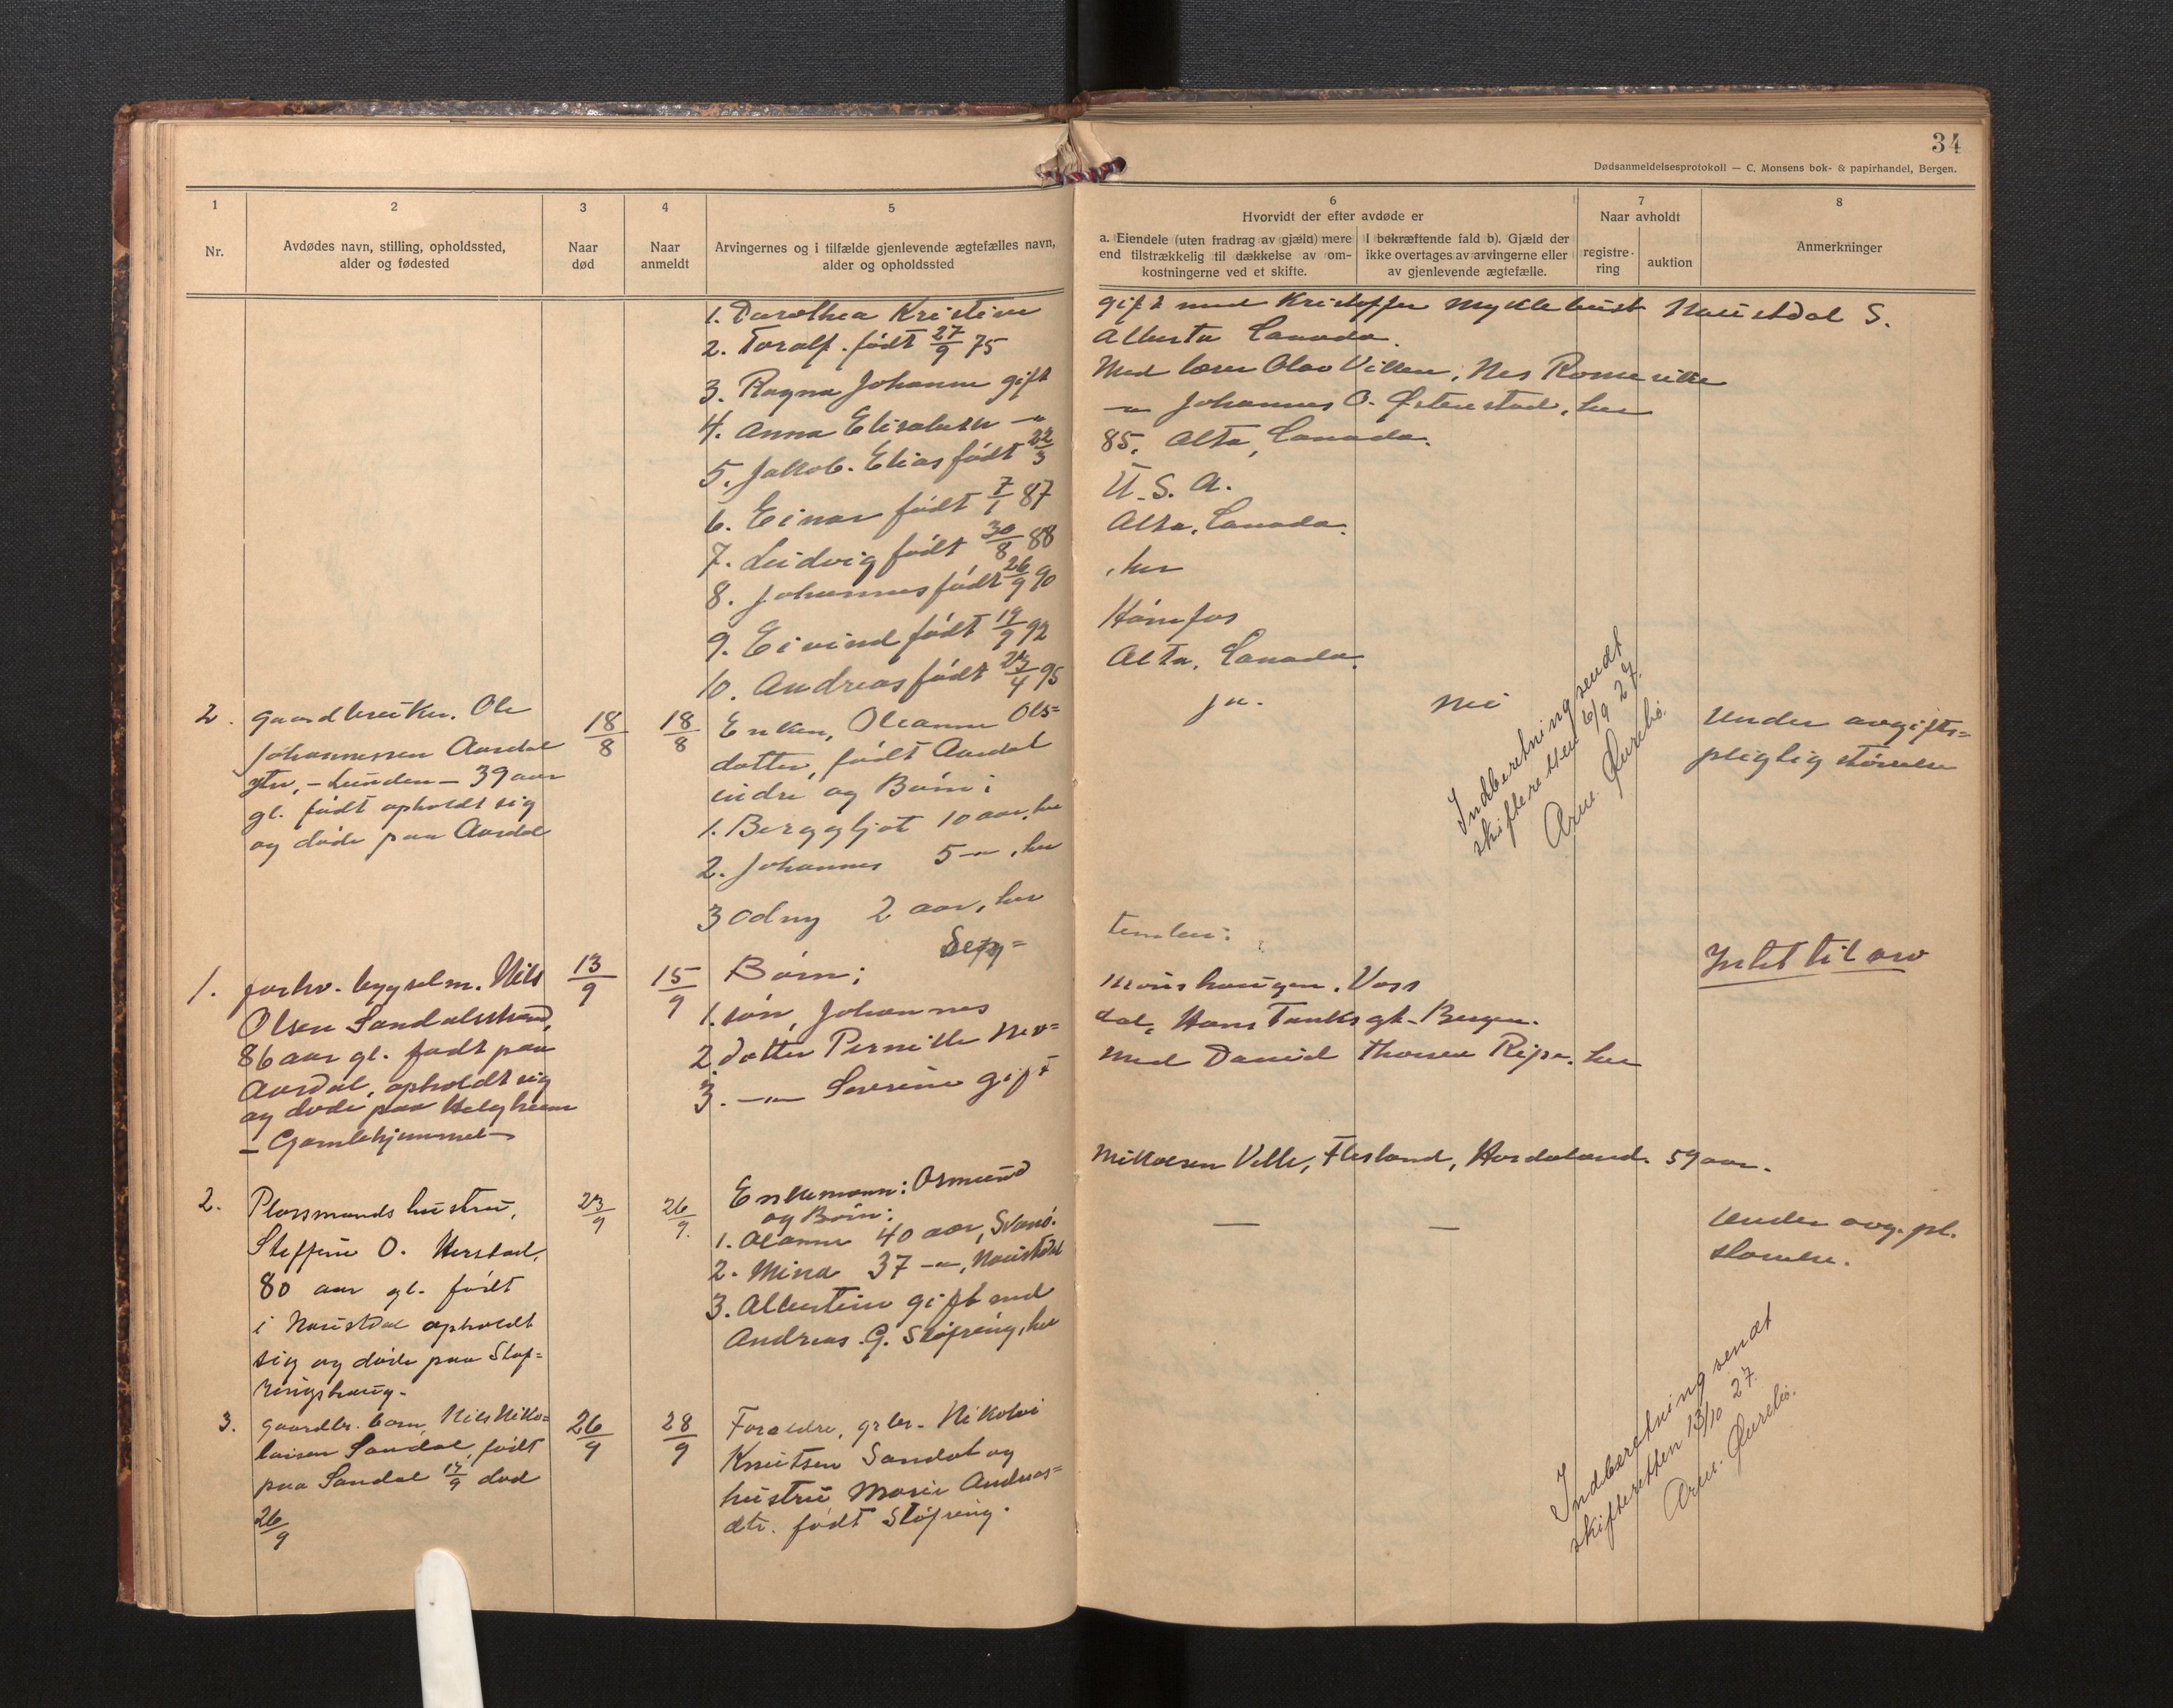 34
Dødsanmeldelsesprotokoll — C. Monsens bok- & papirhandel, Bergen.
1
Nr.
2
Avdødes navn, stilling, opholdssted,
alder og fødested
3
Naar
død
4
Naar
anmeldt
5
Arvingernes og i tilfælde gjenlevende ægtefælles navn,
alder og opholdssted
6
Hvorvidt der efter avdøde er
a. Eiendele (uten fradrag av gjæld) mere
end tilstrækkelig til dækkelse av om-
kostningerne ved et skifte.
I bekræftende fald b). Gjæld der
ikke overtages av arvingerne eller
av gjenlevende ægtefælle.
7
Naar avholdt
registre-
ring
auktion
8
Anmerkninger
1. Dorothea Kristine gift med Kristoffer Myklebust Naustdal S.
2. Toralf. født 27/9 75 Alberta Canada.
3. Ragna Johanne gift Med lærer Olav Vikken, Nes Romerike
4. Anna Elisabeth -"- -"- Johannes O. Østenstad, her
5. Jakob. Elias født 22/3 85. Alta, Canada.
6. Einar født 7/1 87 U.S.A.
7. Ludvig født 30/8 88 Alta, Canada.
8. Johannes født 26/9 90 , her
9. Eivind født 19/9 92 Hønefos
10. Andreas født 24/4 95 Alta, Canada.
2. gaardbruker. Ole 18/8 18/8 Enken, Oleanne Ols= ja. nei Under avgifts=
Johannessen Aardal dotter, født Aardal pligtig størrelse
ytre, - Lunden - 39 aar indre og Børn:
gl. født opholdt sig 1. Berggljot 10 aar, her
og døde paa Aardal 2. Johannes 5 -"- , her
3 Odny 2 aar, her
Indberetning sendt
skifteretten 6/9 27.
Arne
Sep= tember:
1. forhv. bygselm. Nils 13/9 15/9 Børn: Intet til arv
Olsen Sandalsstrand, 1. søn, Johannes haugen, Voss
86 aar gl. født paa 2 dotter Pernille Nev= dal, Hans Tanks gt. Bergen.
Aardal, opholdt sig 3. -"- Severine gift med David Thorsen Ripe, her
og døde paa Helgheim
- Gamlehjemmet -
2. Plassmands hustru, 23/9 26/9. Enkemann: Osmund Mikkelsen Velle, Flesland, Hordaland. 59 aar.
Steffine O. Herstad, og Børn:
80 aar gl. født 1. Oleanne 40 aar, Svanø. — — Under avg. pl.
i Naustdal opholdt 2. Mina 37 -"-, Naustdal størrelse.
sig og døde paa Støf= 3. Albertine gift med
ringshaug. Andreas G. Støfring, her
3. gaardbr. barn, Nils Niko= 26/9 28/9 Foreldre, grbr. Nikolai
laisen Sandal, født Knutsen Sandal og
paa Sandal 17/9 død hustru Marie Andreas=
26/9 dtr. født Støfring.
Indberetning sendt
skifteretten 13/10 27.
Arne